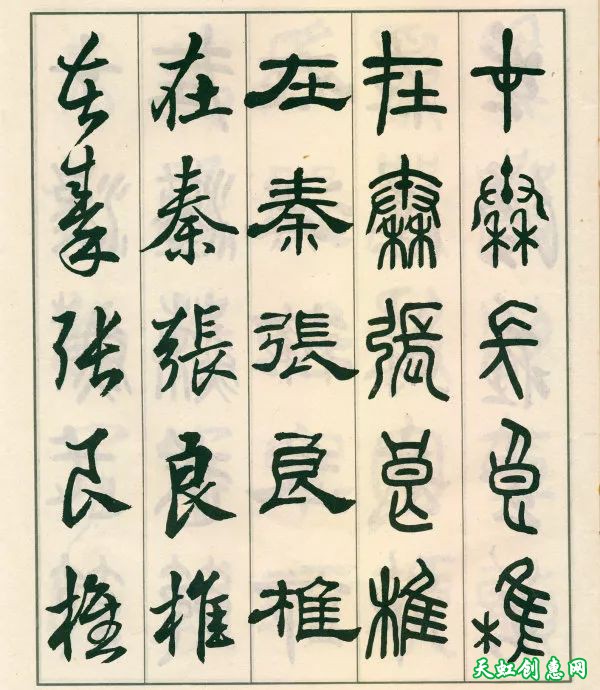 在秦張良椎
在秦張良椎
在秦張良椎
在秦張良椎
在秦張良椎
天虹创惠网